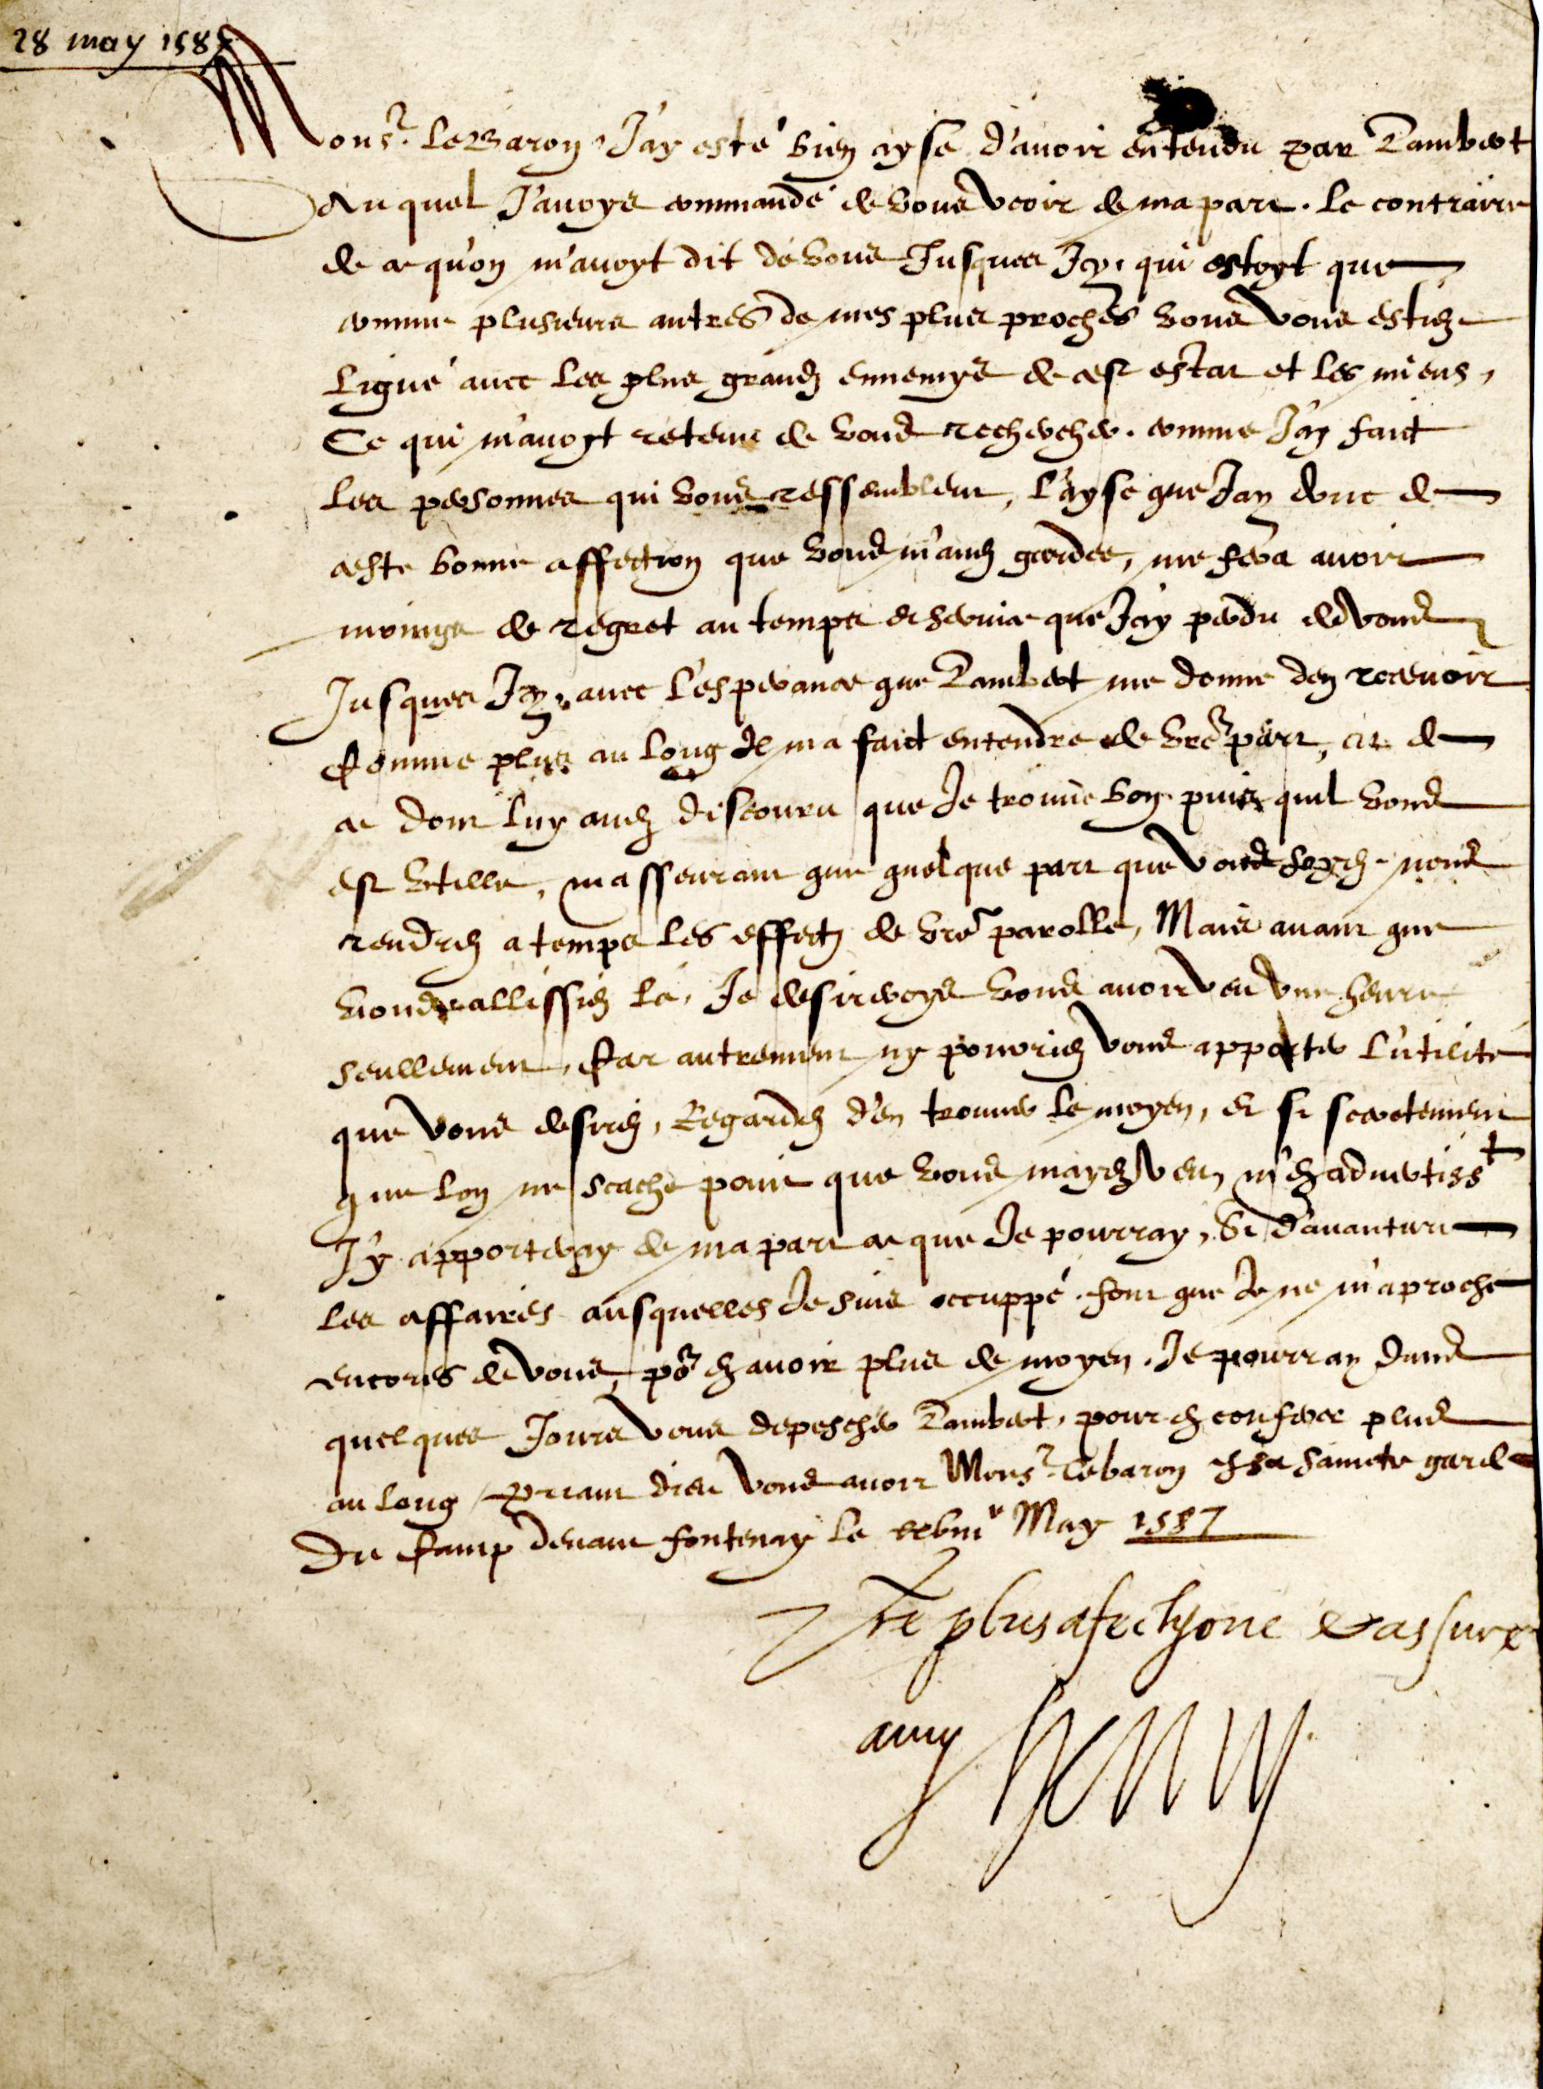 28 may 1587
Monsr. le Baron, J'ay esté bien ayse d'avoir entendu par Lambert
Au quel J'avoys commandé de vous veoir de ma part. le contraire
de ce qu'on m'avoyt dit de vous Jusques Icy, qui estoyt que
comme plusieurs autres de mes plus proches vous vous estiez
ligué avec les plus grandz ennemys de cest estat et les miens,
Ce qui m'avoyt retenu de vous rechercher. comme J'ay faict
les personnes qui vous ressemblent, L'ayse que Jay donc de
ceste bonne affection que vous m'avez gardée, me fera avoir
moings de regret au temps et service que J'ay perdu de vous
Jusques Icy, avec l'esperance que Lambert me donne den recevoir
Comme plus au long Il m'a faict entendre de vre part, et de
ce dont luy avez discouru que Je trouve bon puis quil vous
est utille, m'asseurant que quelque part que vous soyez nous
rendrez a temps les effectz de vre parolle, Mais avant que
vous allissiez là, Je desireroys vous avoir veu une heure
seullement, Car autrement ny pourriez vous apporter l'utilité
que vous desirez, Regardez d'en trouver le moyen, et si secretement
que lon ne scache point que vous mayez veu, m'en advertisst
J'y apporteray de ma part ce que Je pourray, Si d'avanture
les affaires ausquelles Je suis occuppé font que Je ne m'aproche
encores de vous, por en avoir plus de moyen. Je pourray dans
quelques Jours vous depescher Lambert, pour en conferer plus
au long, Priant dieu vous avoir Monsr. le baron en sa saincte garde
Du Camp devant fontenay le xxviiie May 1587
Vre plus afectyoné & assuré
amy Henry